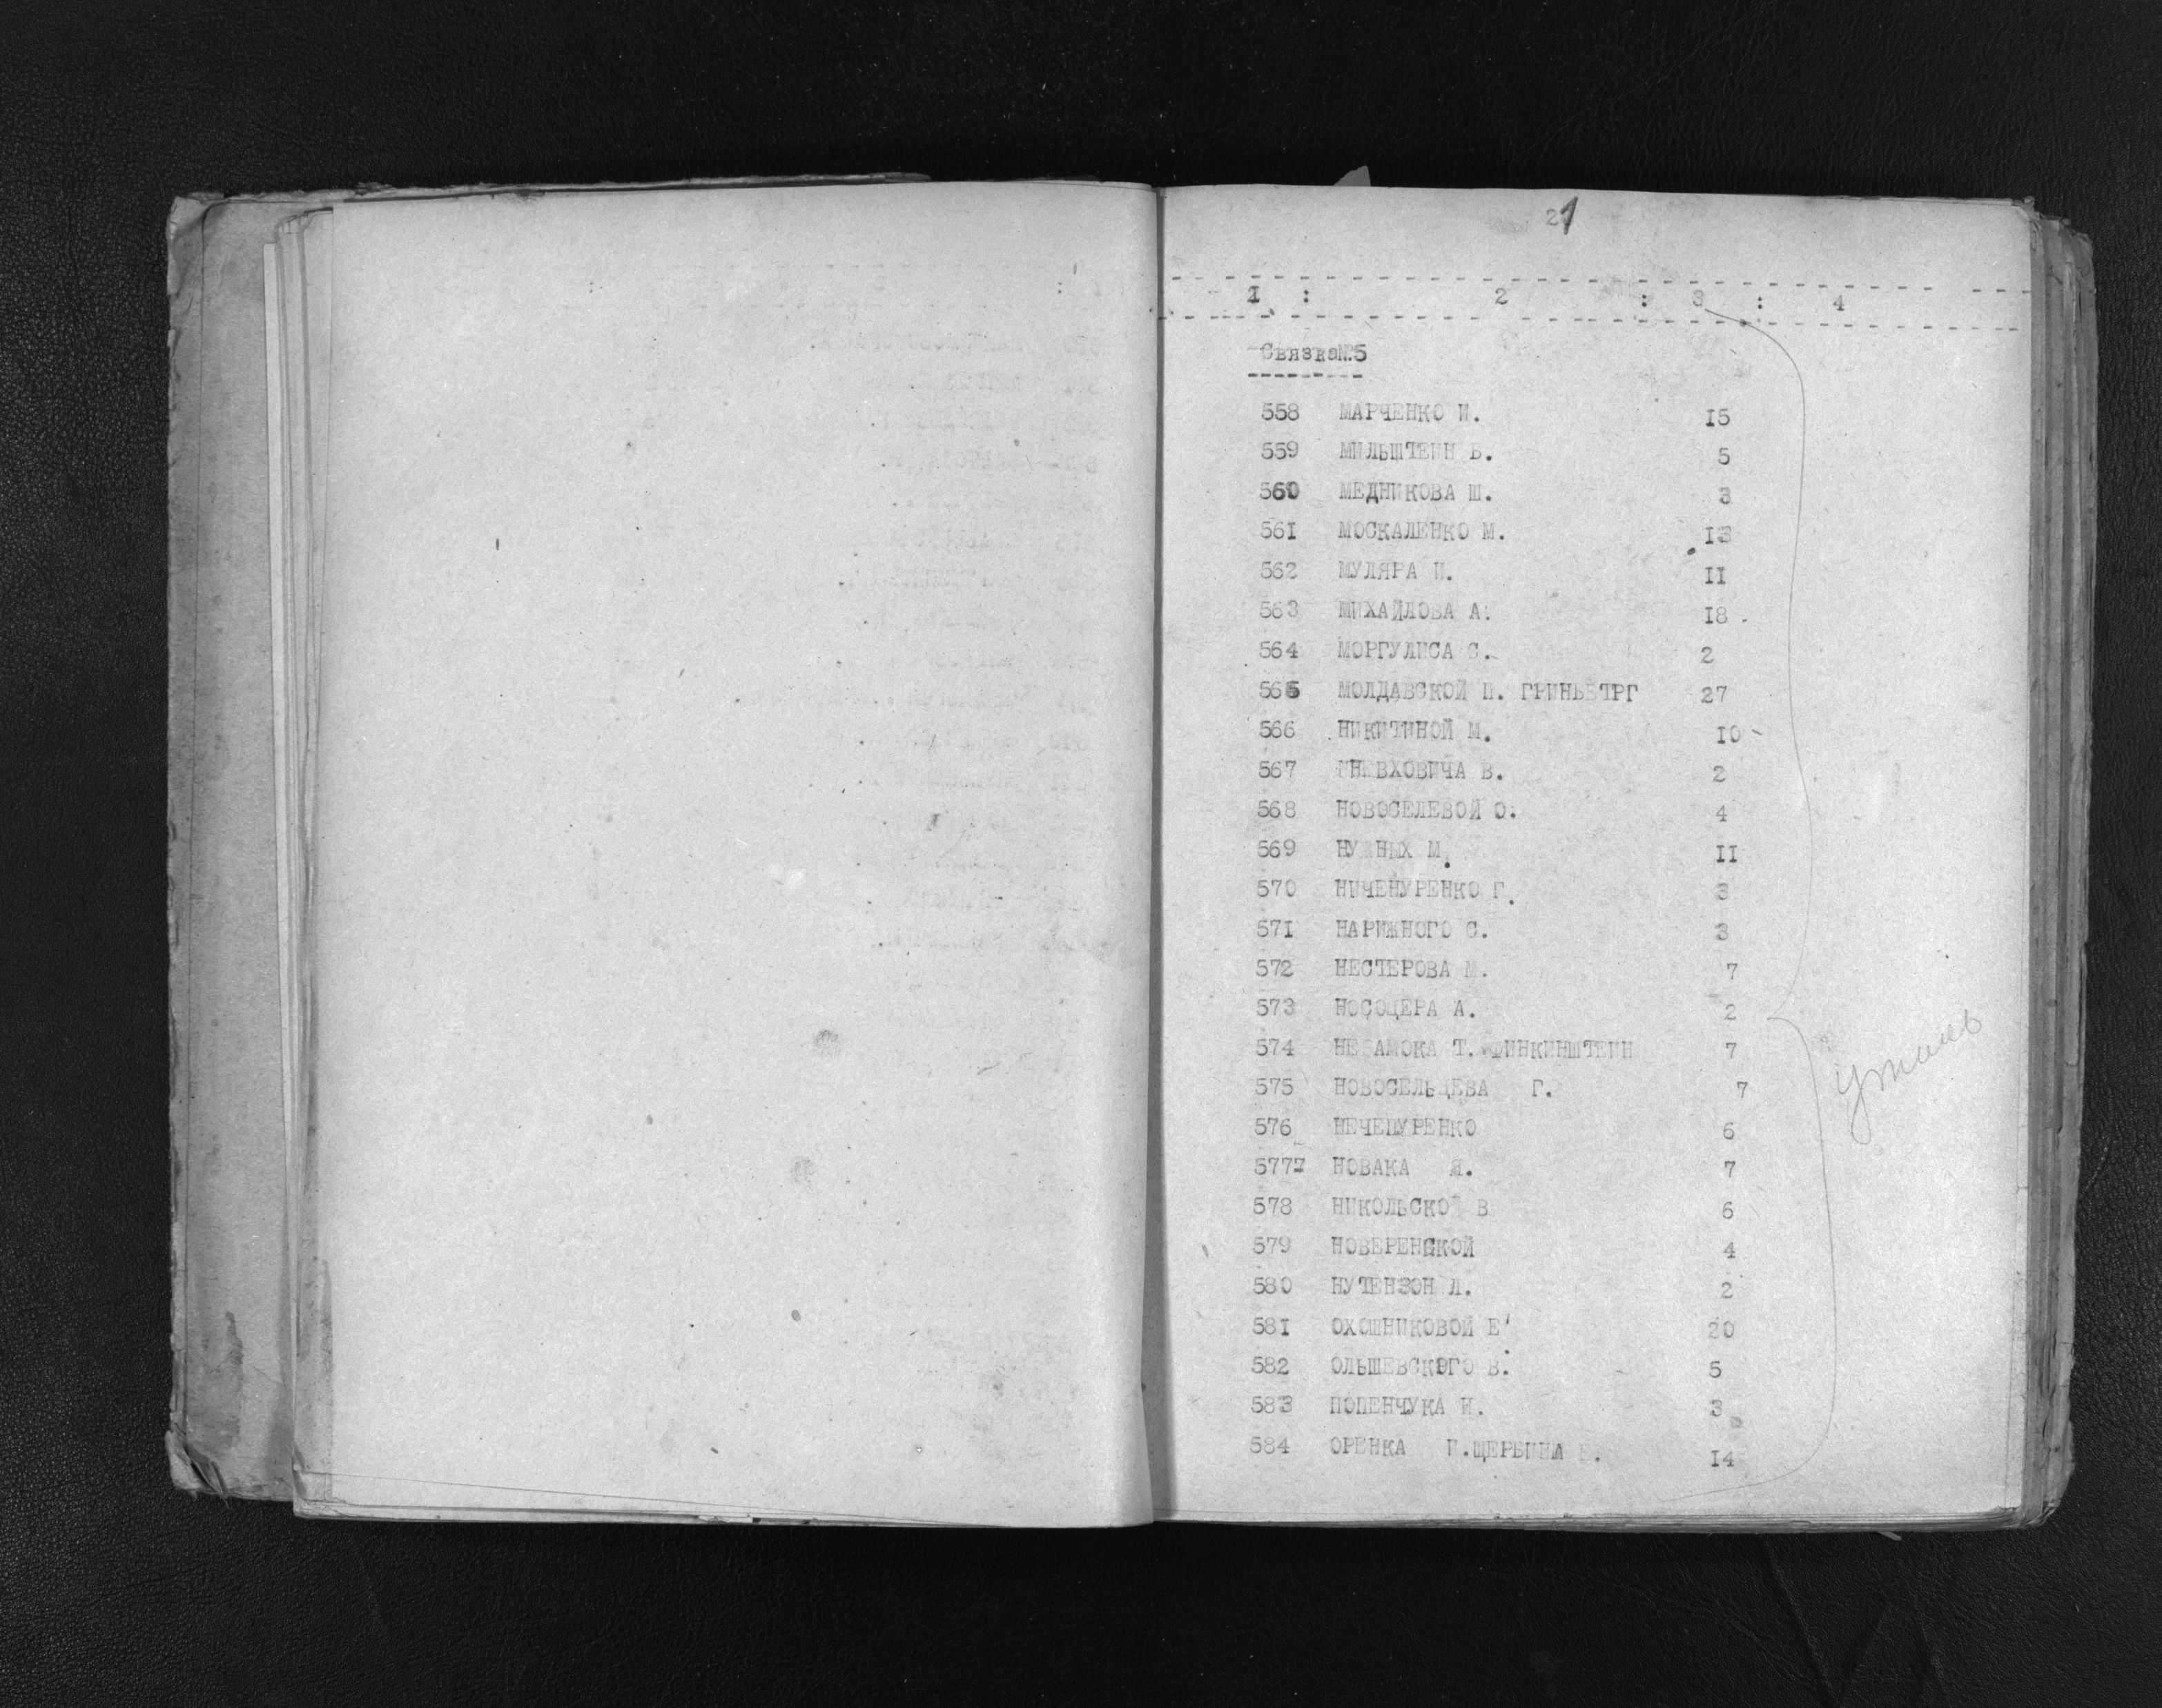 21
1 : 2 : 3 : 4
Связка№5
558 МАРЧЕНКО И. 15
559 МИЛЬШТЕИН Б. 5
560 МЕДНИКОВА Ш. 3
561 МОСКАЛЕНКО М. 13
562 МУЛЯРА И. II
563 МИХАЙЛОВА А. 18
564 МОРГУЛИСА С. 2
565 МОЛДАВСКОЙ И. 27
566 НИКИТИНОЙ М. 10
567 В. 2
568 НОВОСЕЛЕВОЙ О. 4
569 М. II
570 НИЧЕПУРЕНКО Г. 3
571 НАРИЖНОГО С. 3
572 НЕСТЕРОВА М. 7
573 НОСОЦЕРА А. 2
574 Т. ФИНКИНШТЕИН 7
575 НОВОСЕЛЬЦЕВА Г. 7
576 НЕЧЕПУРЕНКО 6
5777 НОВАКА Я. 7
578 НИКОЛЬСКОЙ В 6
579 НОВЕРЕНСКОЙ 4
580 НУТЕНЗОН Л. 2
581 ОХОШНИКОВОЙ Е 20
582 ОЛЬШЕВСКОГО В. 5
583 ПОПЕНЧУКА И. 3
584 ОРЕНКА И.ЩЕРБИНА 14